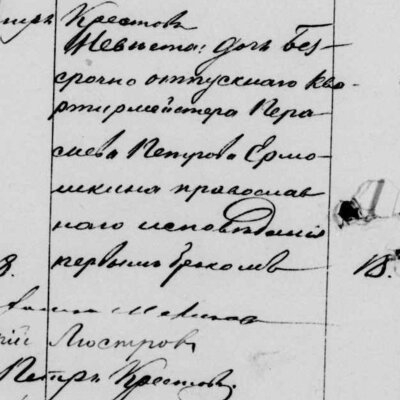 Петръ Крестовъ
Невѣста: дочь без-
срочно отпускнаго Ква-
ртирмейстера Гера-
сиева Петрова Ермо-
шкина православ
наго исповѣданія
первымъ бракомъ
18.
Люстровъ
Петръ Крестовъ.